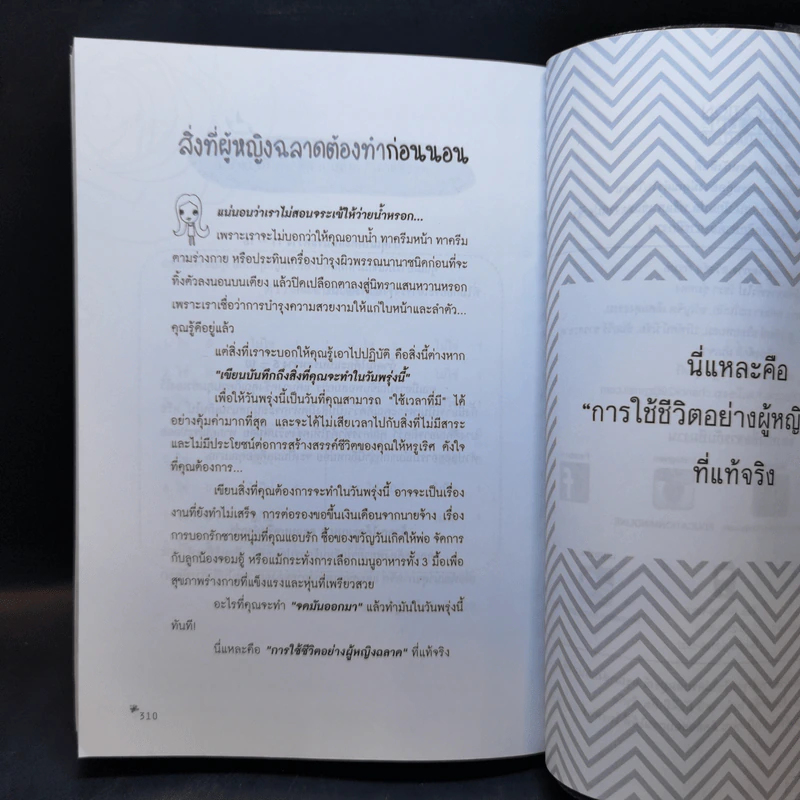 สิ่งที่ผู้หญิงฉลาดต้องทำก่อนนอน
แน่นอนว่าเราไม่สอนจระเข้ให้ว่ายน้ำหรอก...
เพราะเราจะไม่บอกว่าให้คุณอาบน้ำ ทาครีมหน้า ทาครีม
ตามร่างกาย หรือประทินเครื่องบำรุงผิวพรรณนานาชนิดก่อนที่จะ
ทิ้งตัวลงนอนบนเตียง แล้วปิดเปลือกตาลงสู่นิทราแสนหวานหรอก
เพราะเราเชื่อว่าการบำรุงความสวยงามให้แก่ใบหน้าและลำตัว...
คุณรู้ดีอยู่แล้ว
แต่สิ่งที่เราจะบอกให้คุณรู้เอาไปปฏิบัติ คือสิ่งนี้ต่างหาก
"เขียนบันทึกถึงสิ่งที่คุณจะทำในวันพรุ่งนี้"
เพื่อให้วันพรุ่งนี้เป็นวันที่คุณสามารถ "ใช้เวลาที่มี" ได้
อย่างคุ้มค่ามากที่สุด และจะได้ไม่เสียเวลาไปกับสิ่งที่ไม่มีสาระ
และไม่มีประโยชน์ต่อการสร้างสรรค์ชีวิตของคุณให้หรูเริศ ดังใจ
ที่คุณต้องการ...
เขียนสิ่งที่คุณต้องการจะทำในวันพรุ่งนี้ อาจจะเป็นเรื่อง
งานที่ยังทำไม่เสร็จ การต่อรองขอขึ้นเงินเดือนจากนายจ้าง เรื่อง
การบอกรักชายหนุ่มที่คุณแอบรัก ซื้อของขวัญวันเกิดให้พ่อ จัดการ
กับลูกน้องจอมอู้ หรือแม้กระทั่งการเลือกเมนูอาหารทั้ง 3 มื้อเพื่อ
สุขภาพร่างกายที่แข็งแรงและหุ่นที่เพรียวสวย
อะไรที่คุณจะทำ "จดมันออกมา" แล้วทำมันในวันพรุ่งนี้
ทันที!
นี่แหละคือ "การใช้ชีวิตอย่างผู้หญิงฉลาด" ที่แท้จริง
310
นี่แหละคือ
"การใช้ชีวิตอย่างผู้หญิ
ที่แท้จริง